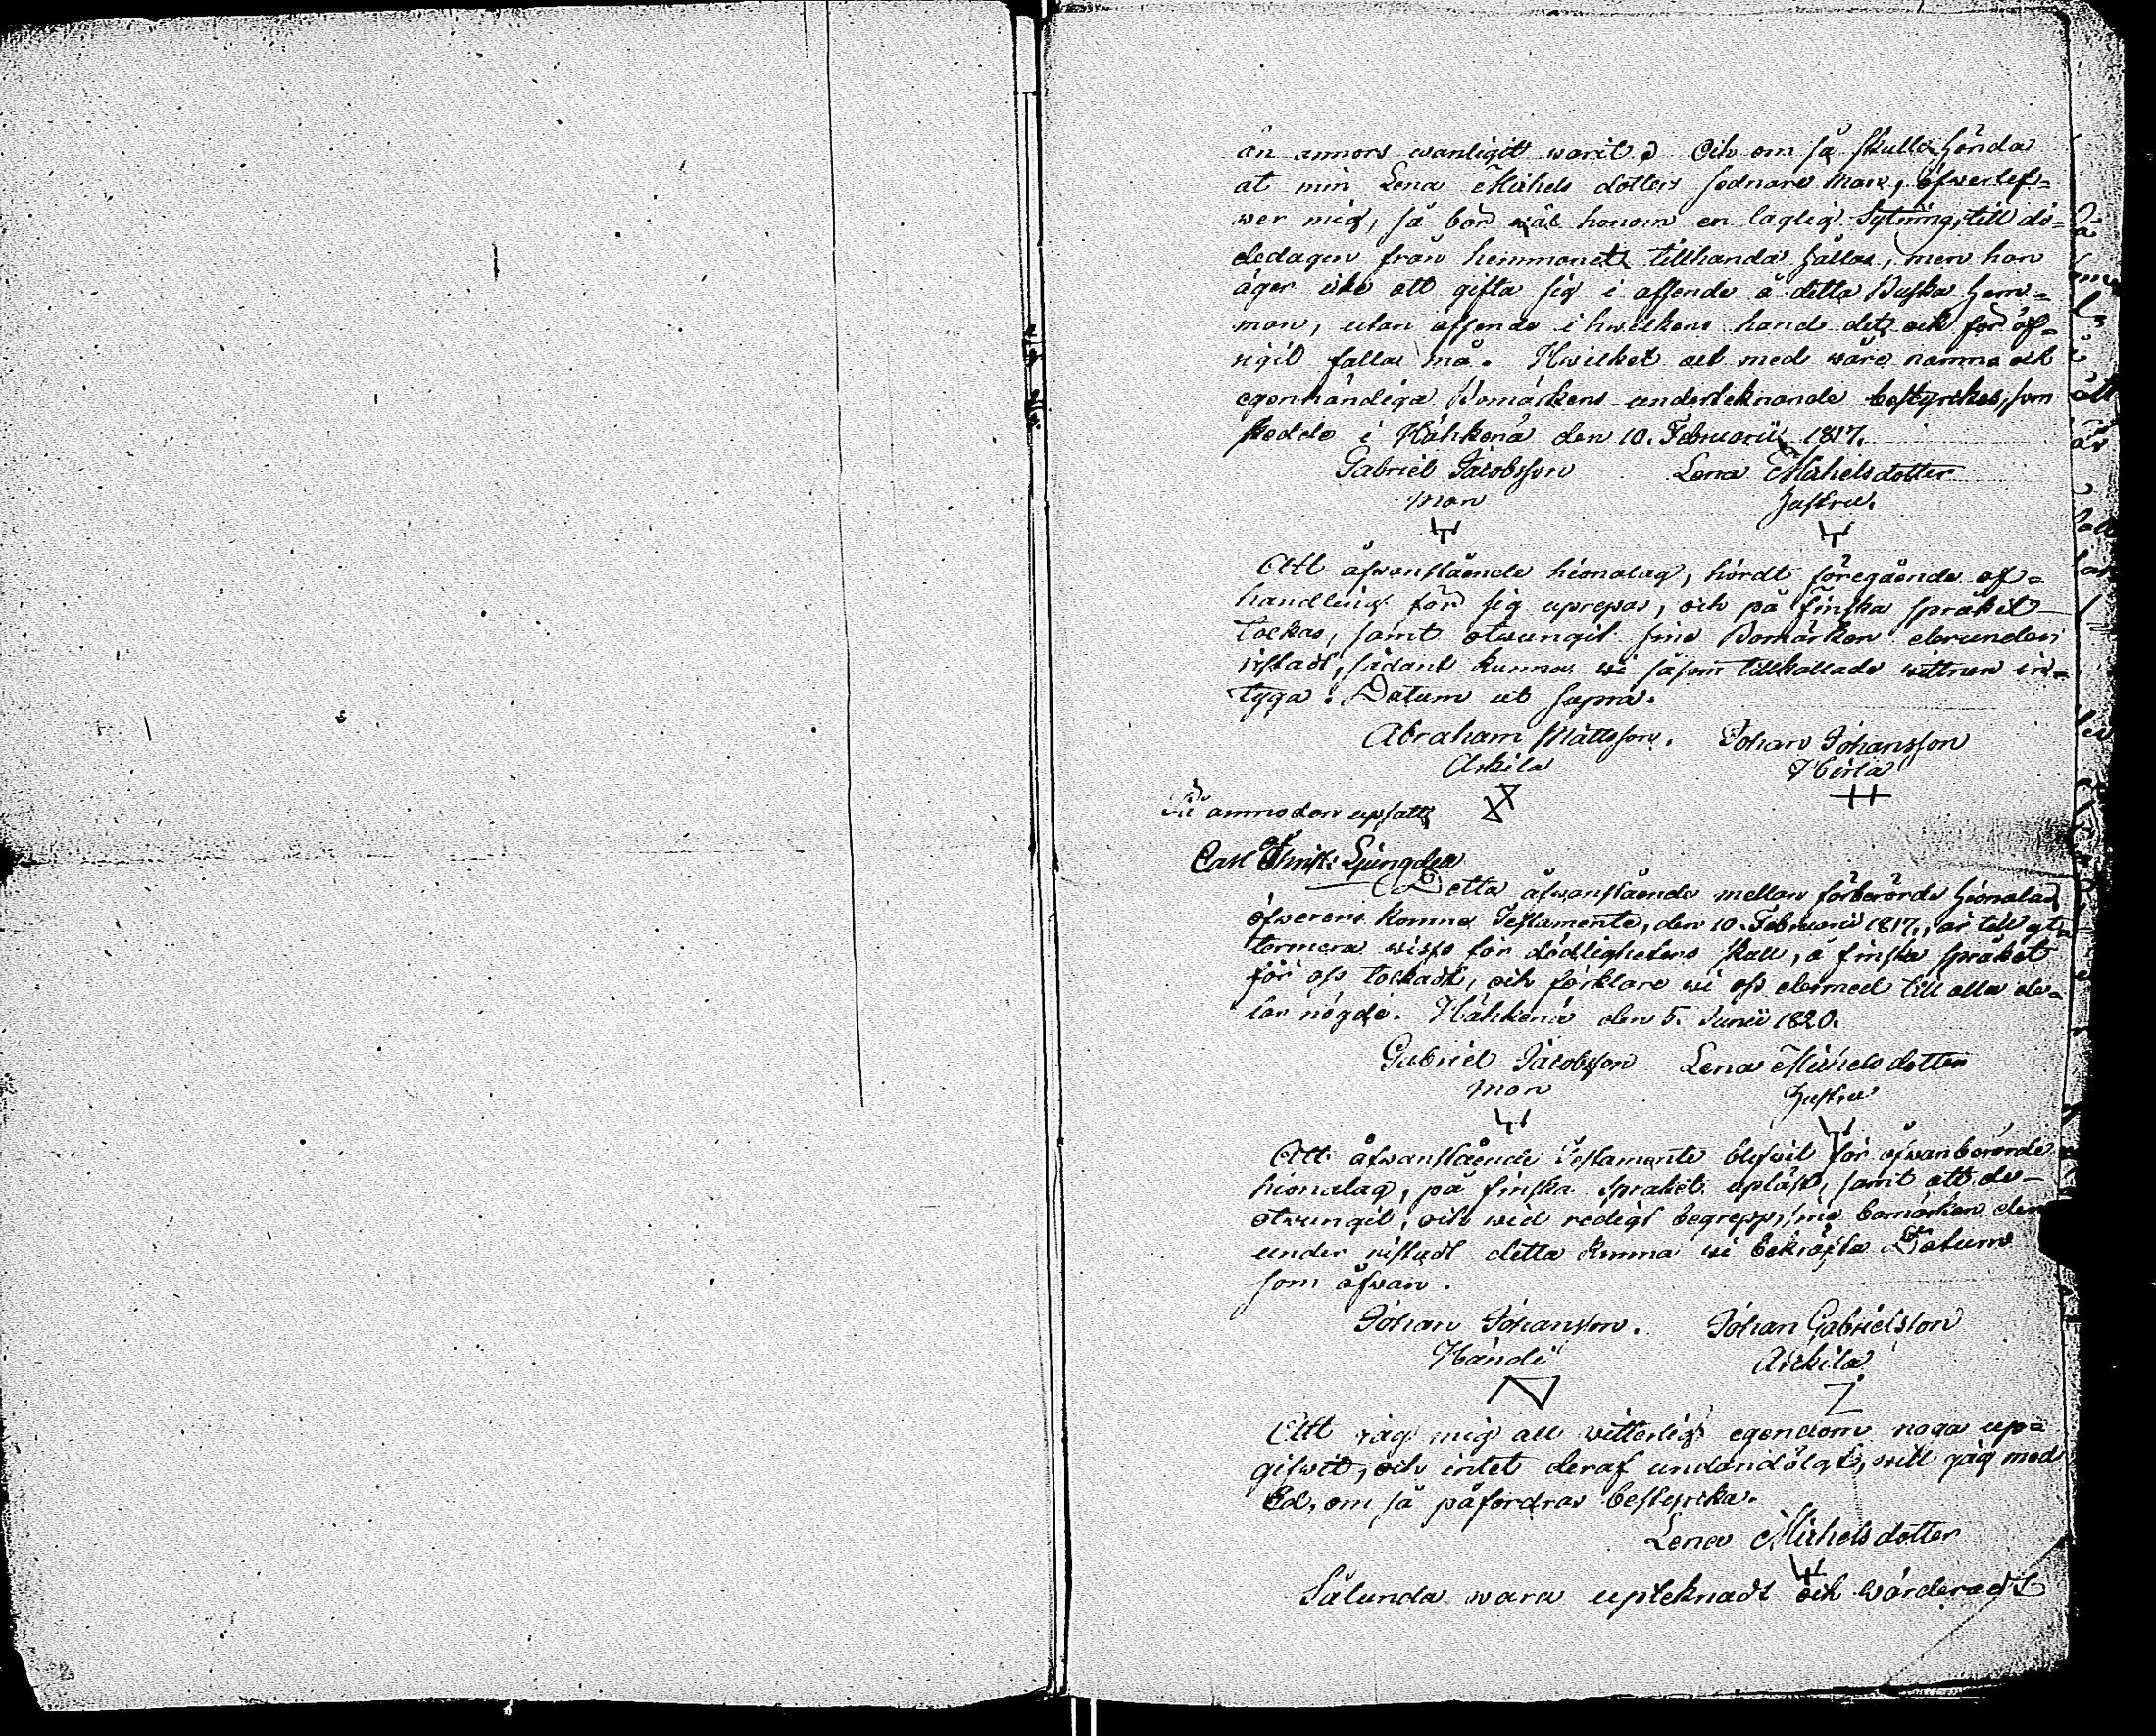 än annors wanligitt warit. Och om så skulle hända
at min Lena Michels dotters sednare Man, öfwerlef=
wer mig, så bör wäl honom en laglig Sytning, till dö=
dedagen från hemmanet tillhanda hållas, men han
äger icke att gifta sig i affende å detta Buska Hem=
man, utan affende i hwilkens hand det och för öf=
rigit falla må. Hwilket alt med wåre namns och
egenhändiga Bomärkens undertecknande bestyrckes, som
skedde i Hähkenä den 10. Februarii 1817.
Gabriel Jacobsson Lena Michelsdotter
man hustru.
Att åfwanstående hionalag, hördt föregående af=
handling för sig uprepas, och på finska språket
tolckas, samt otwungit sine Bomärken derunder
ristadt, sådant kunna wi såsom tillkallade wittnen in=
tyga. Datum ut supra.
Abraham Mattsson. Johan Johansson
Arkila Hörla
På anmodan upsatt
Carl Christ: Ljungdea
Detta åfwanstående mellan förberörde Hionalag
öfwerens komne Testamente, den 10. Februarii 1817, är till yt=
termera wisso för dödlighetens skall, å finska språket
för oss tolckadt, och förklare wi oss dermed till alla de=
lar nögde. Hähkenä den 5. Junii 1820.
Gabriel Jacobsson Lena Michels dotter
man hustru
Att åfwanstående Testamente blifwit för åfwanberörde
hionalag, på finska Språket upläst, samt att de
otwungit, och wid redigt begrepp, sine bomärken der
under ristadt detta kunna wi bekräfta Datum
som åfwan.
Johan Johansson. Johan Gabrielsson
Händi Arkila
Att jag mig all witterlig egendom noga up=
gifwit, och intet deraf undandölgt, will jag med
Ed, om så påfordras bestyrcka.
Lena Michels dotter
Sålunda wara uptecknadt och wärderadt